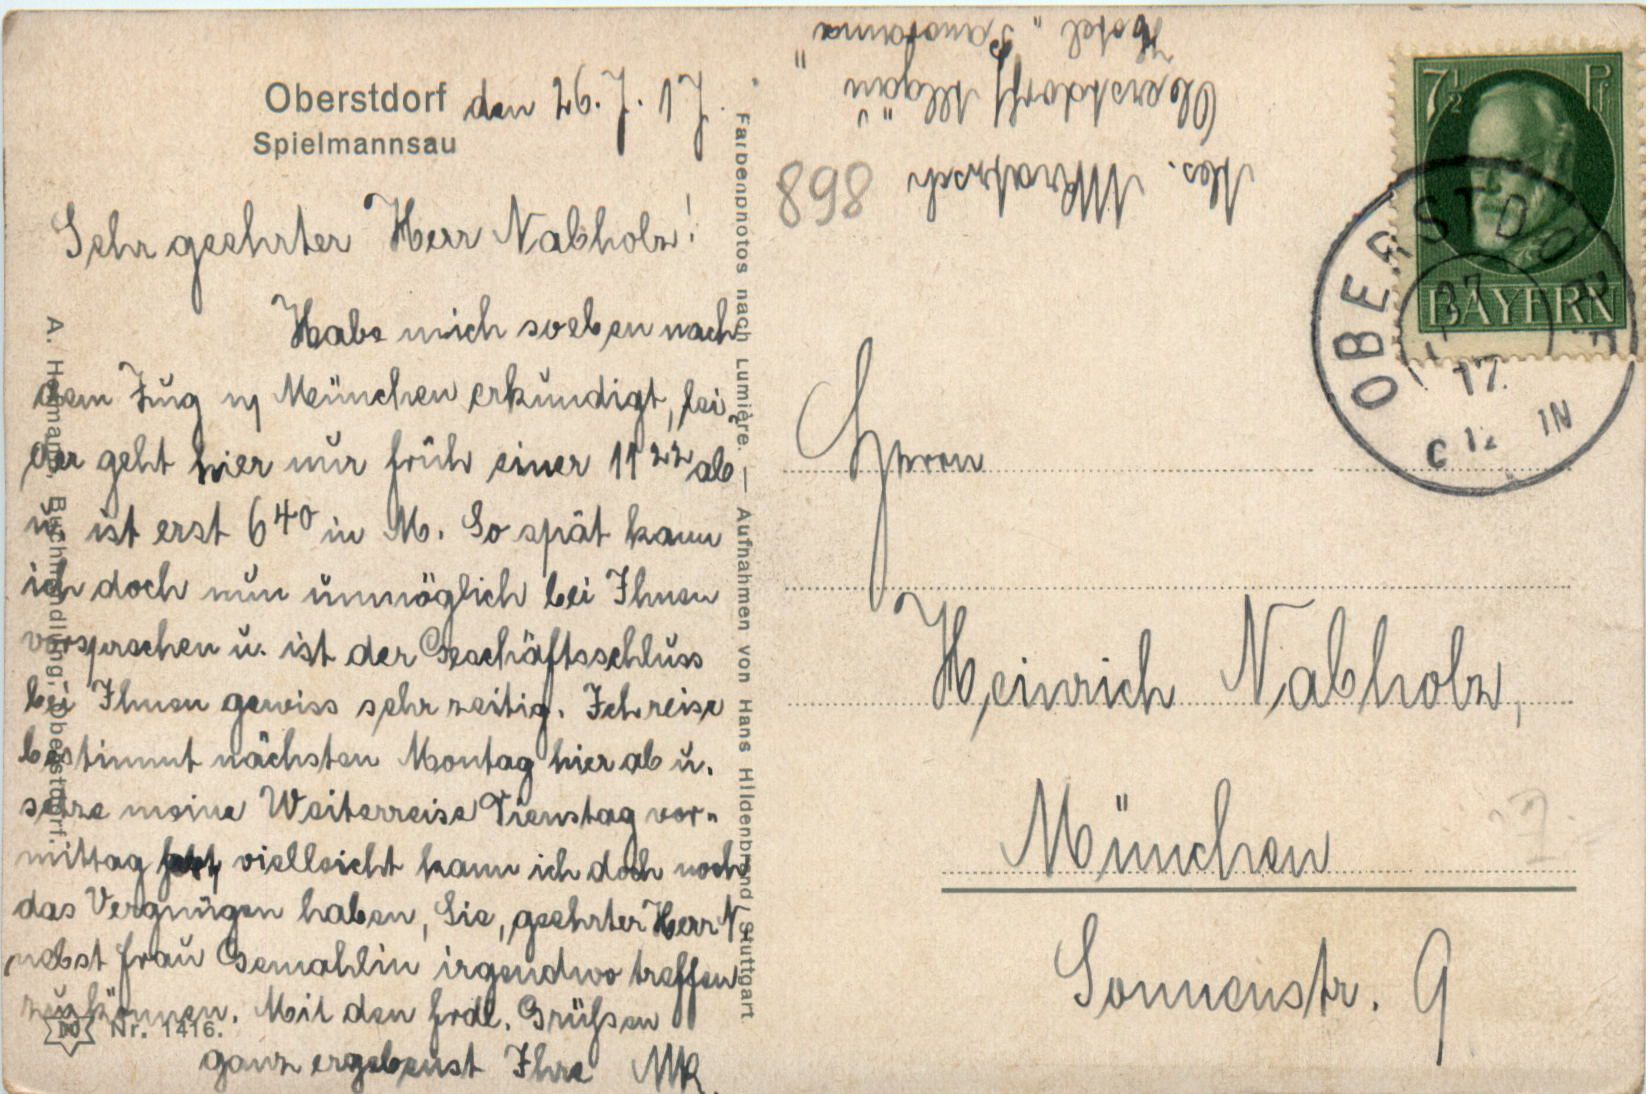 Oberstdorf den 26. 7. 17.
Spielmannsau
Sehr geehrter Herr Nabholz!
Habe mich soeben nach
dem Zug n. München erkundigt, lei
der geht hier nur früh einer 11 22 ab
u. ist erst 6 40 in M. So spät kann
ich doch nun unmöglich bei Ihnen
vorsprechen u. ist der Geschäftsschluss
bei Ihnen gewiss sehr zeitig. Ich reise
bestimmt nächsten Montag hier ab u.
setze meine Weiterreise Dienstag vor-
mittag vielleicht kann ich doch noch
das Vergnügen haben, Sie, geehrter Herr N,
nebst Frau Gemahlin irgendwo treffen
zu können. Mit den frdl. Grüßen
ganz ergebenst Ihre MR.
Nr. 1416.
A. Hofmann, Buchhandlung, Oberstdorf.
Farbenphotos nach Lumière. — Aufnahmen von Hans Hildenbrand, Stuttgart
Abs.
Oberstdorf Allgäu
Hotel „Panorama"
898
7½ Pf
BAYERN
OBERSTDORF
27
17.
Herrn
Heinrich Nabholz,
München
Sonnenstr. 9